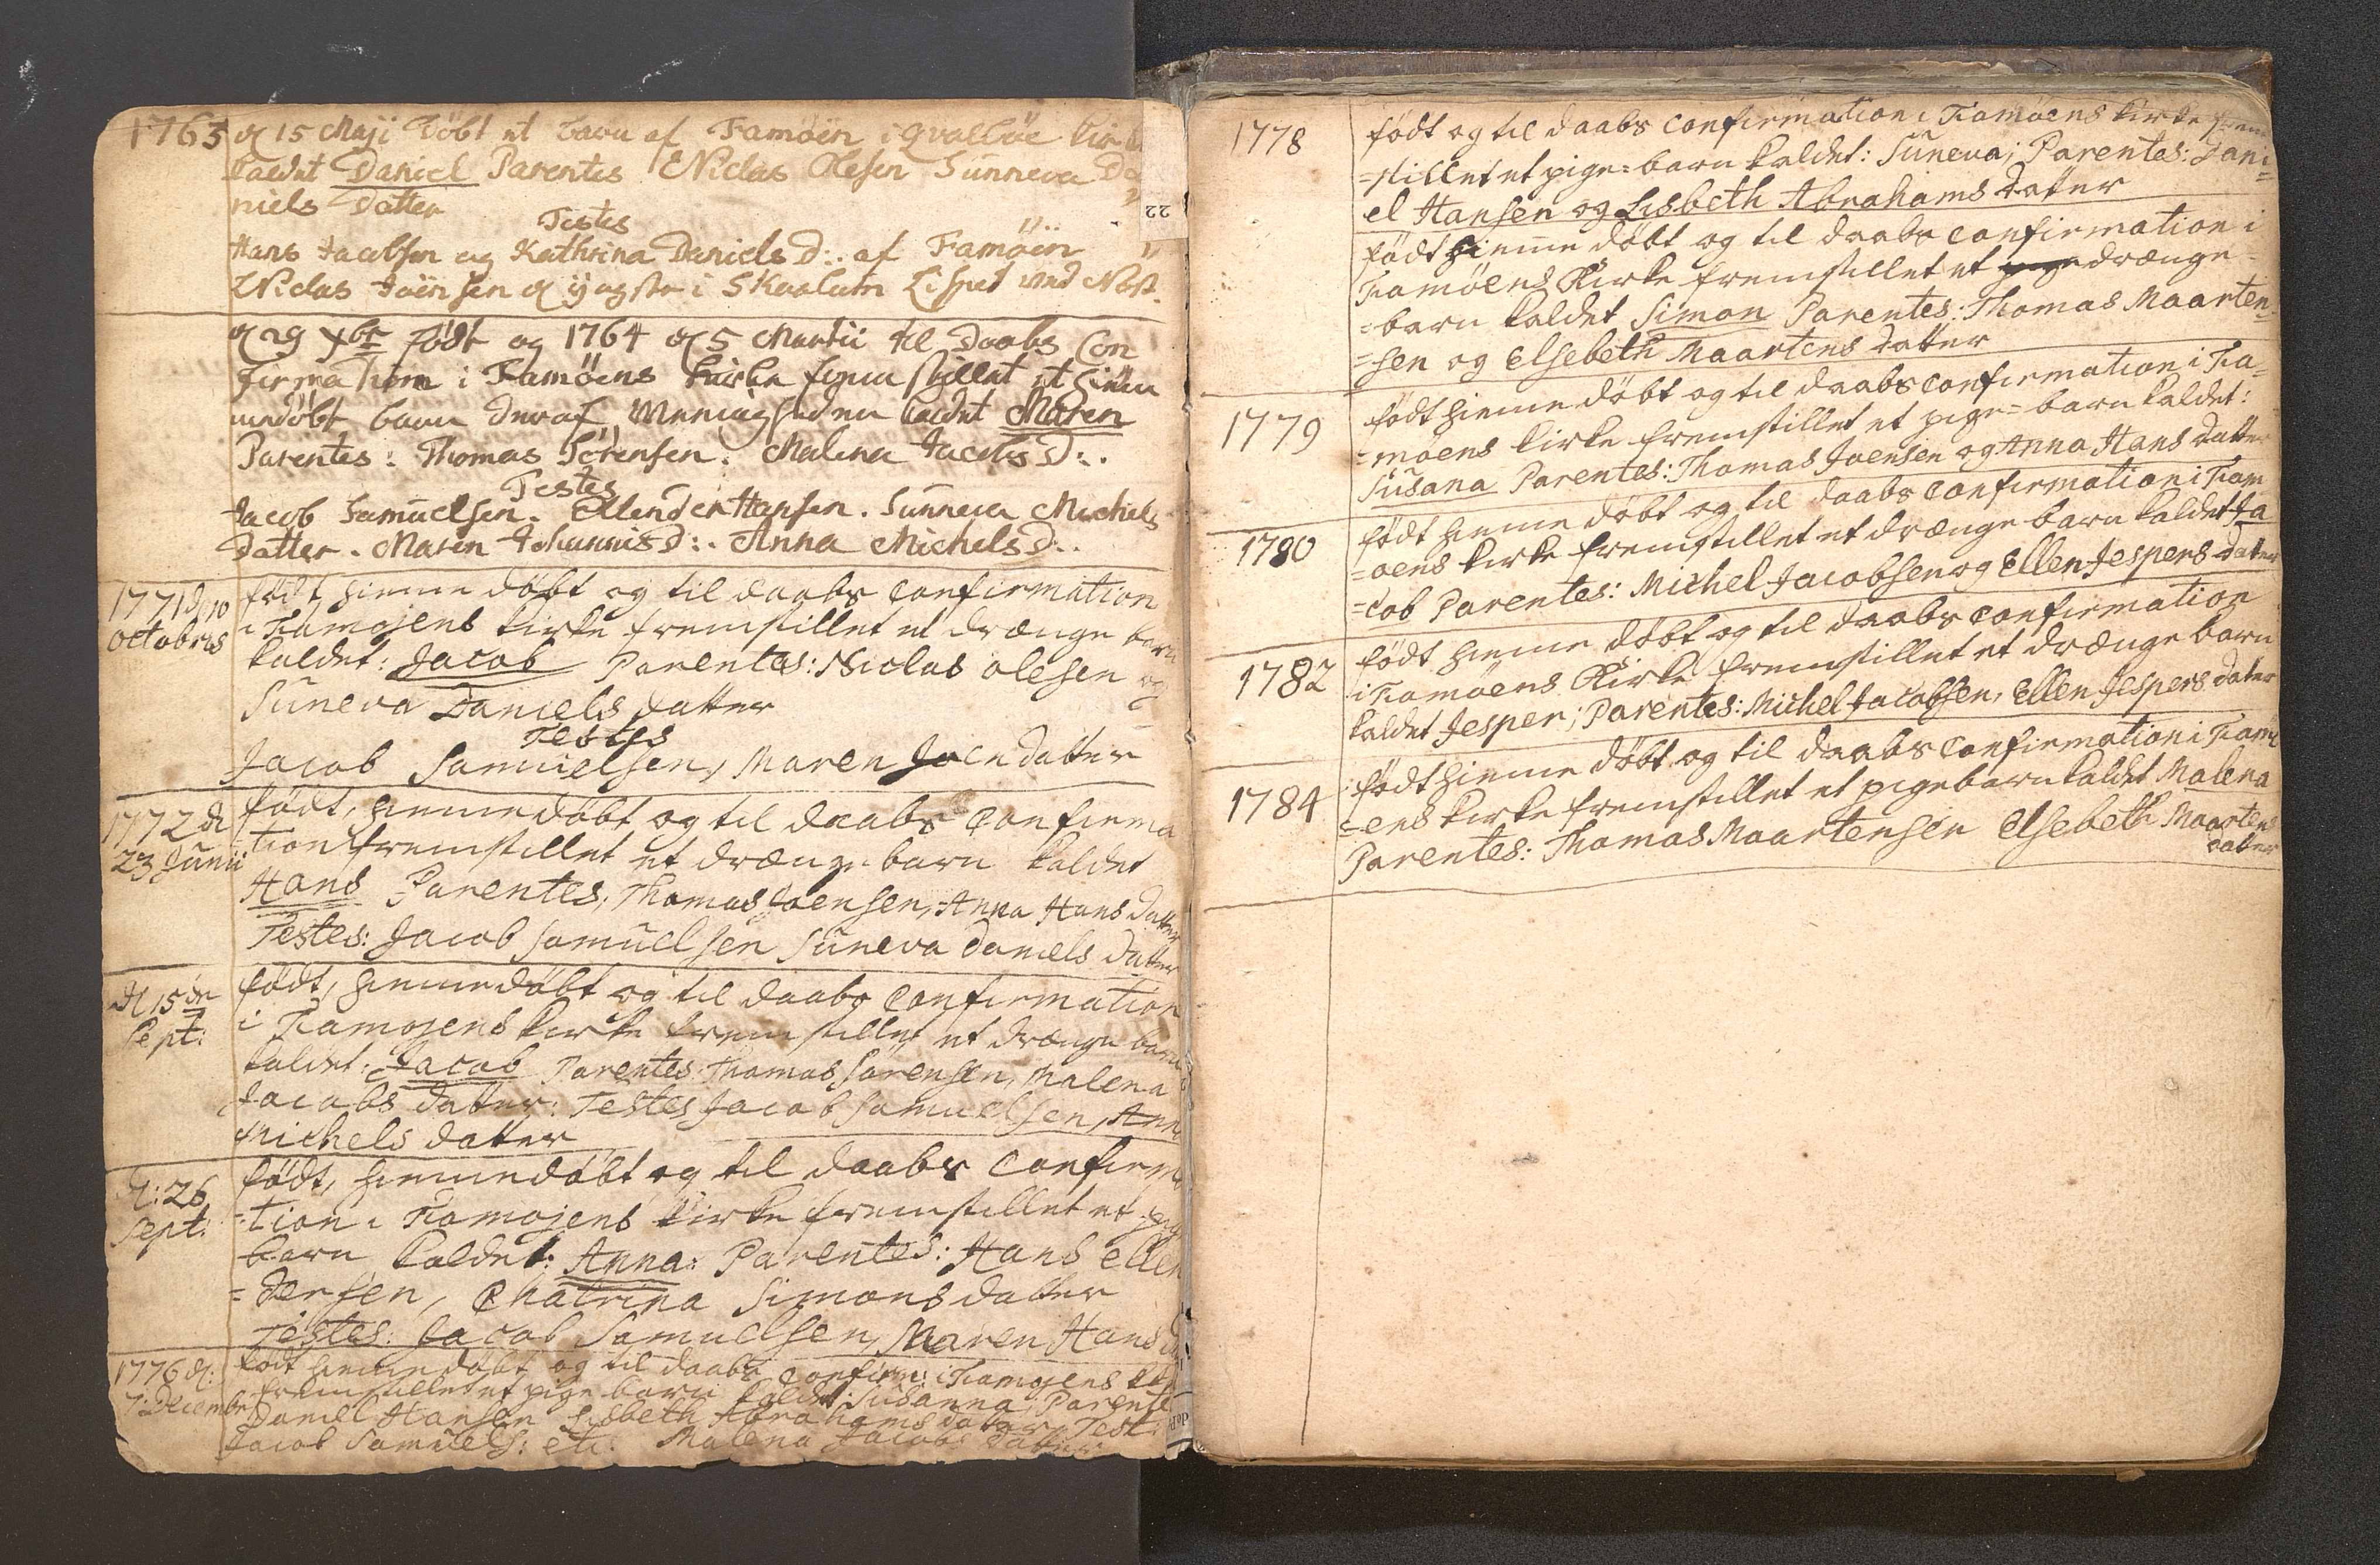 1763 d 15 Maji döbt et barn af Famöin i Qvalböe
kaldet Daniel Parentes Niclas Olesen Sunneva Da
niels Datter
Testes
22
Hans Jacobsen og Kathrina Daniels D:. af Famöin
Niclas Joensen
d 29 xbr födt og 1764 d 5 Martii til Daabs Con
firmation i Famöens kirke frem stillet et hiem
medöbt barn deraf Meenigheden kaldet Maren
Parentes: Thomas Sörensen. Malena Jacobs D:.
Testes
Jacob Samuelsen. Ellend er Hansen. Sunneva Michels
datter. Maren Johannis D:. Anna Michels D:.
1771 d 10 födt, hieme döbt og til daabs confirmation
octobris i Famojens kirke fremstillet et drænge barn
kaldet: Jacob Parentes: Niclas olesen og
Suneva Daniels datter
Testes
Jacob Samuelsen, Maren Joendatter
1772 d födt, hiemedöbt og til daabs confirma
23 Junii tion fremstillet et drænge barn kaldet
Hans Parentes, Thomas Joensen, Anna Hans datter
Testes: Jacob Samuelsen Suneva Daniels datter
d 15de födt, hiemedöbt og til daabs confirmation
Sept: i Famojens kirke fremstillet et drænge barn
kaldet: Jacob Parentes Thomas Sørensen, Malena
Jacobs datter: Testes Jacob Samuelsen, Anna
Michels datter
d: 26 födt, hiemedöbt og til daabs confirma
Sept: =tion i Famojens kirke fremstillet et pige
barn kaldet: Anna: Parentes: Hans Ellen
=dersen, Chatrina Simonsdatter
Testes: Jacob Samuelsen, Maren Hans
1776 d: födt hiemedöbt og til daabs confirm: i Famojens
7: Decembr fremstillet et pige barn kaldet: Susanna; Parente
Daniel Hansen Lisbeth Abrahams dater Test:
Jacob Samuels: etc: Malena Jacobs datter
1778 födt og til daabs confirmation i Famöens kirke frem
=stillet et pige=barn kaldet: Suneva; Parentes: Dani=
el Hansen og Lisbeth Abrahams datter
födt hieme döbt og til daabs confirmation i
Famöens Kirke fremstillet et pige drænge
=barn kaldet Simon Parentes: Thomas Maarten=
=sen og Elsebeth Maartens datter
1779 födt hieme döbt og til daabs confirmation i Fa=
=möens kirke fremstillet et pige=barn kaldet:
Susana Parentes: Thomas Joensen og Anna Hans datter
1780 födt hieme döbt og til daabs confirmation i Fam
=oens kirke fremstillet et drænge barn kaldet Ja
=cob Parentes: Michel Jacobsen og Ellen Jespers datter
1782 födt hieme döbt og til daabs confirmation
i Famöens Kirke fremstillet et drænge barn
kaldet Jesper; Parentes: Michel Jacobsen, Ellen Jespers dater
1784 födt hieme döbt og til daabs confirmation i Famö
=ens kirke fremstillet et pigebarn kaldet Malena
Parentes: Thomas Maartensen Elsebeth Maartens
dater